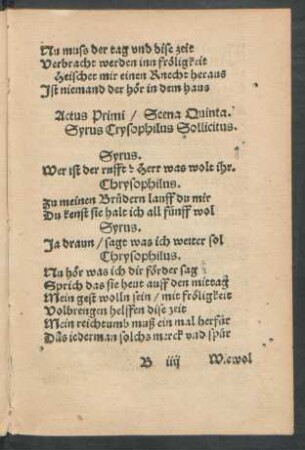 Nu muss der tag vnd dise zeit
Verbracht werden inn frőligkeit
Heischet mir einen Knecht heraus
Ist niemand der hőr in dem haus
Actus Primi / Scena Quinta.
Syrus Crysophilus Sollicitus.
Syrus.
Wer ist der rufft? Herr was wolt ihr.
Chrysophilus.
Zu meinen Brüdern lauff du mir
Du kenst sie halt ich all fünff wol
Syrus.
Ja draun / sagt was ich weiter sol
Chrysophilus.
Nu hőr was ich dir förder sag
Sprich das sie heut auff den mittag
Mein gest wolln sein / mit frőligkeit
Volbrengen helffen dise zeit
Mein reichtumb muß ein mal herfür
Das iederman solchs merck vnd spür
B iiij Wiewol